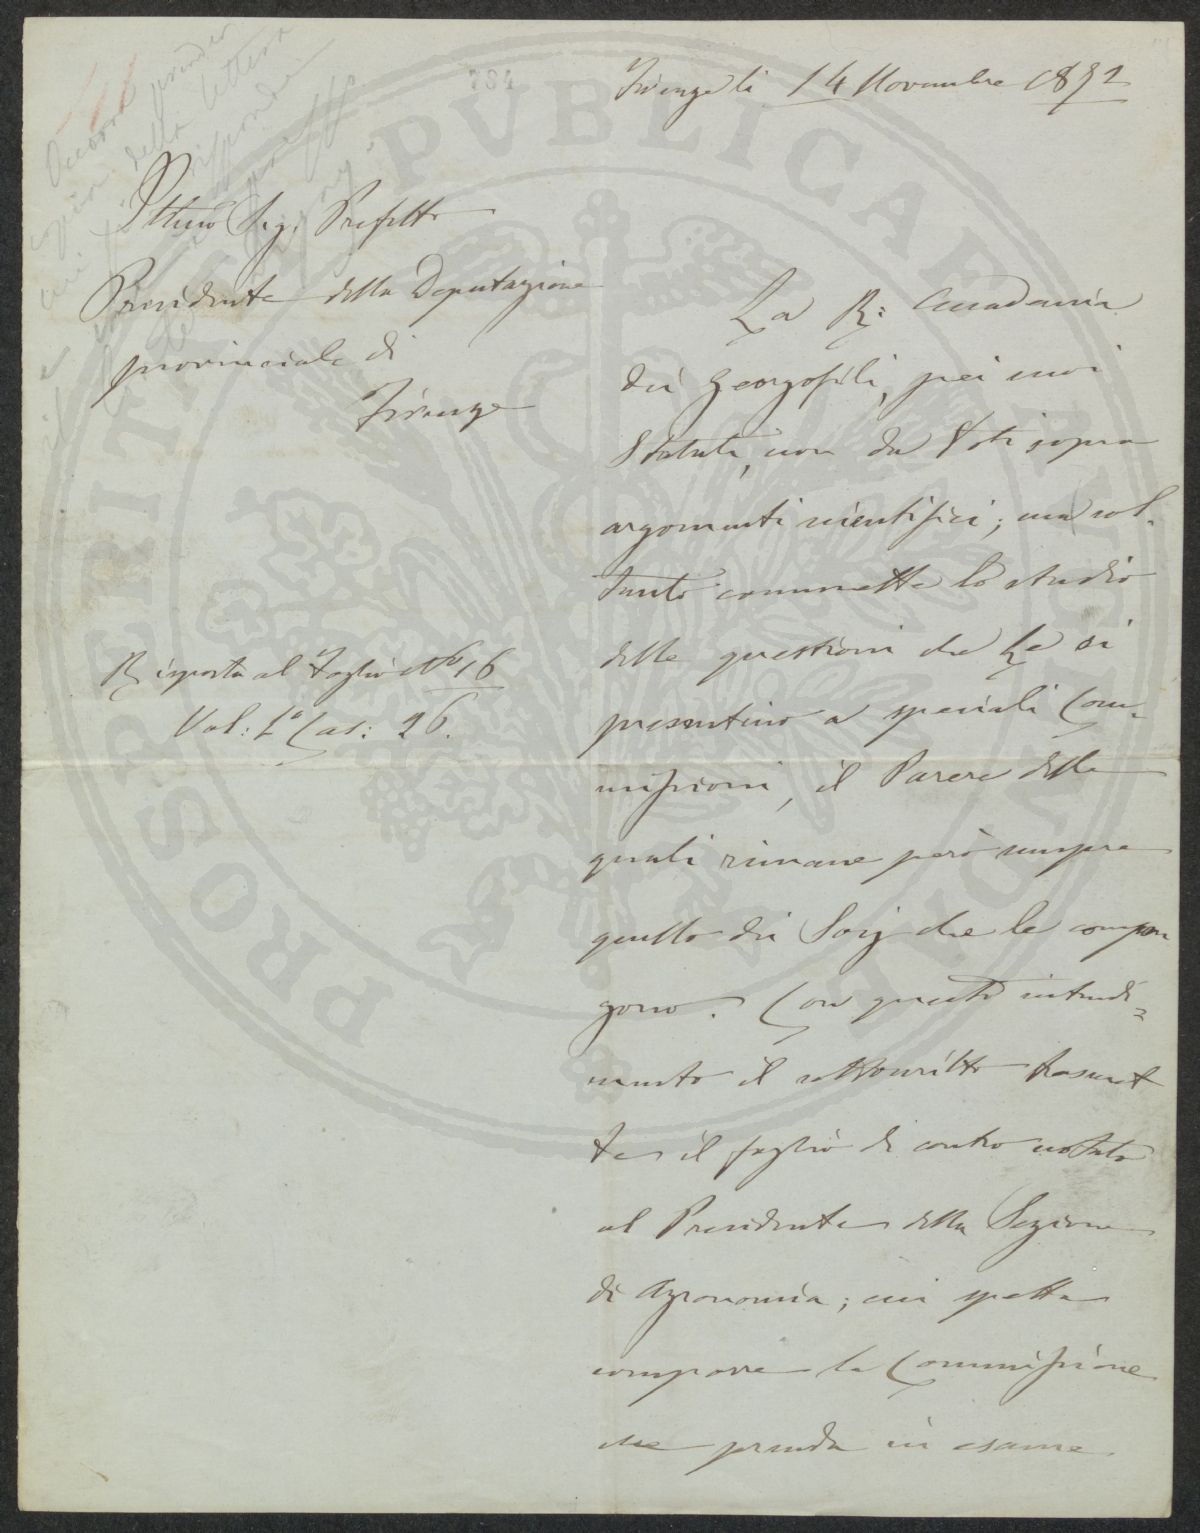 784
Firenze li 14 Novembre 1871
Occorre prender
copia della lettera
cui si risponde
Illmo Sig: Prefetto
Presidente della Deputazione
provinciale di
Firenze
Risposta al Foglio No 16
Vol: 1º Cas: 26.
La R: Accademia
dei Georgofili, pei suoi
Statuti, non da Voti sopra
argomenti scientifici; ma sol-
tanto commette lo studio
delle questioni che le si
presentino a speciali Com-
missioni, il Parere delle
quali rimane però sempre
quello dei Socj che le compon
gono. Con questo intendi=
mento il sottoscritto trasmet
te il foglio di contro notato
al Presidente della Sezione
di Agronomia; cui spetta
comporre la Commissione
che prenda in esame
PROSPERITATI PUBLICAE AUGENDAE